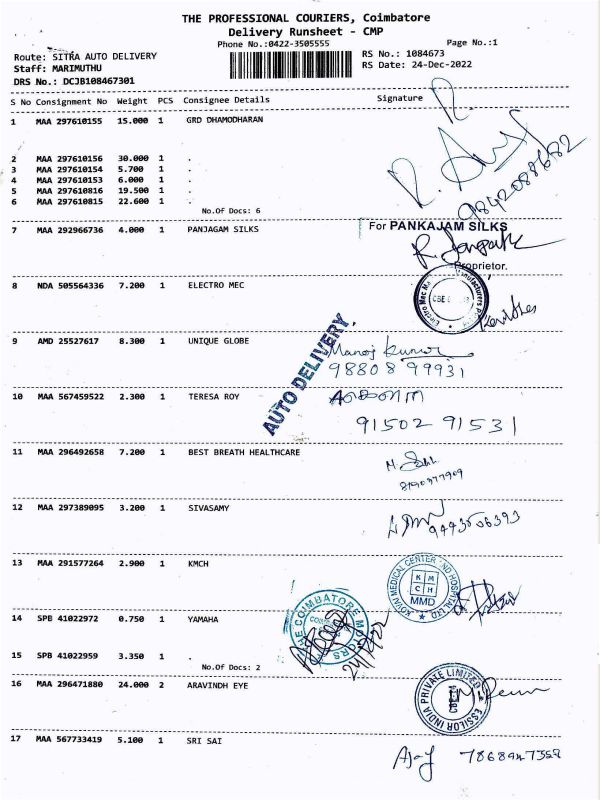 THE PROFESSIONAL COURIERS, Coimbatore
Delivery Runsheet - CMP
Phone No.:0422-3505555
Page No.:1
Route: SITRA AUTO DELIVERY
RS No.: 1084673
Staff: MARIMUTHU
RS Date: 24-Dec-2022
DRS No.: DCJB108467301
S No Consignment No Weight PCS Consignee Details Signature
1 MAA 297610155 15.000 1 GRD DHAMODHARAN
R.
2 MAA 297610156 30.000 1 .
3 MAA 297610154 5.700 1 .
4 MAA 297610153 6.000 1 .
5 MAA 297610816 19.500 1 .
6 MAA 297610815 22.600 1 .
9842088682
No.Of Docs: 6
For PANKAJAM SILKS
7 MAA 292966736 4.000 1 PANJAGAM SILKS
Proprietor.
8 NDA 505564336 7.200 1 ELECTRO MEC
9 AMD 25527617 8.300 1 UNIQUE GLOBE
Manoj Kumar
98808 99931
AUTO DELIVERY.
10 MAA 567459522 2.300 1 TERESA ROY
91502 91531
11 MAA 296492658 7.200 1 BEST BREATH HEALTHCARE
12 MAA 297389095 3.200 1 SIVASAMY
13 MAA 291577264 2.900 1 KMCH
KOVAI MEDICAL CENTER AND HOSPITAL LTD
K M
C H
MMD
14 SPB 41022972 0.750 1 YAMAHA
THE COIMBATORE MOTORS
15 SPB 41022959 3.350 1 .
No.Of Docs: 2
16 MAA 296471880 24.000 2 ARAVINDH EYE
ESSILOR INDIA PRIVATE LIMITED
17 MAA 567733419 5.100 1 SRI SAI
Ajay